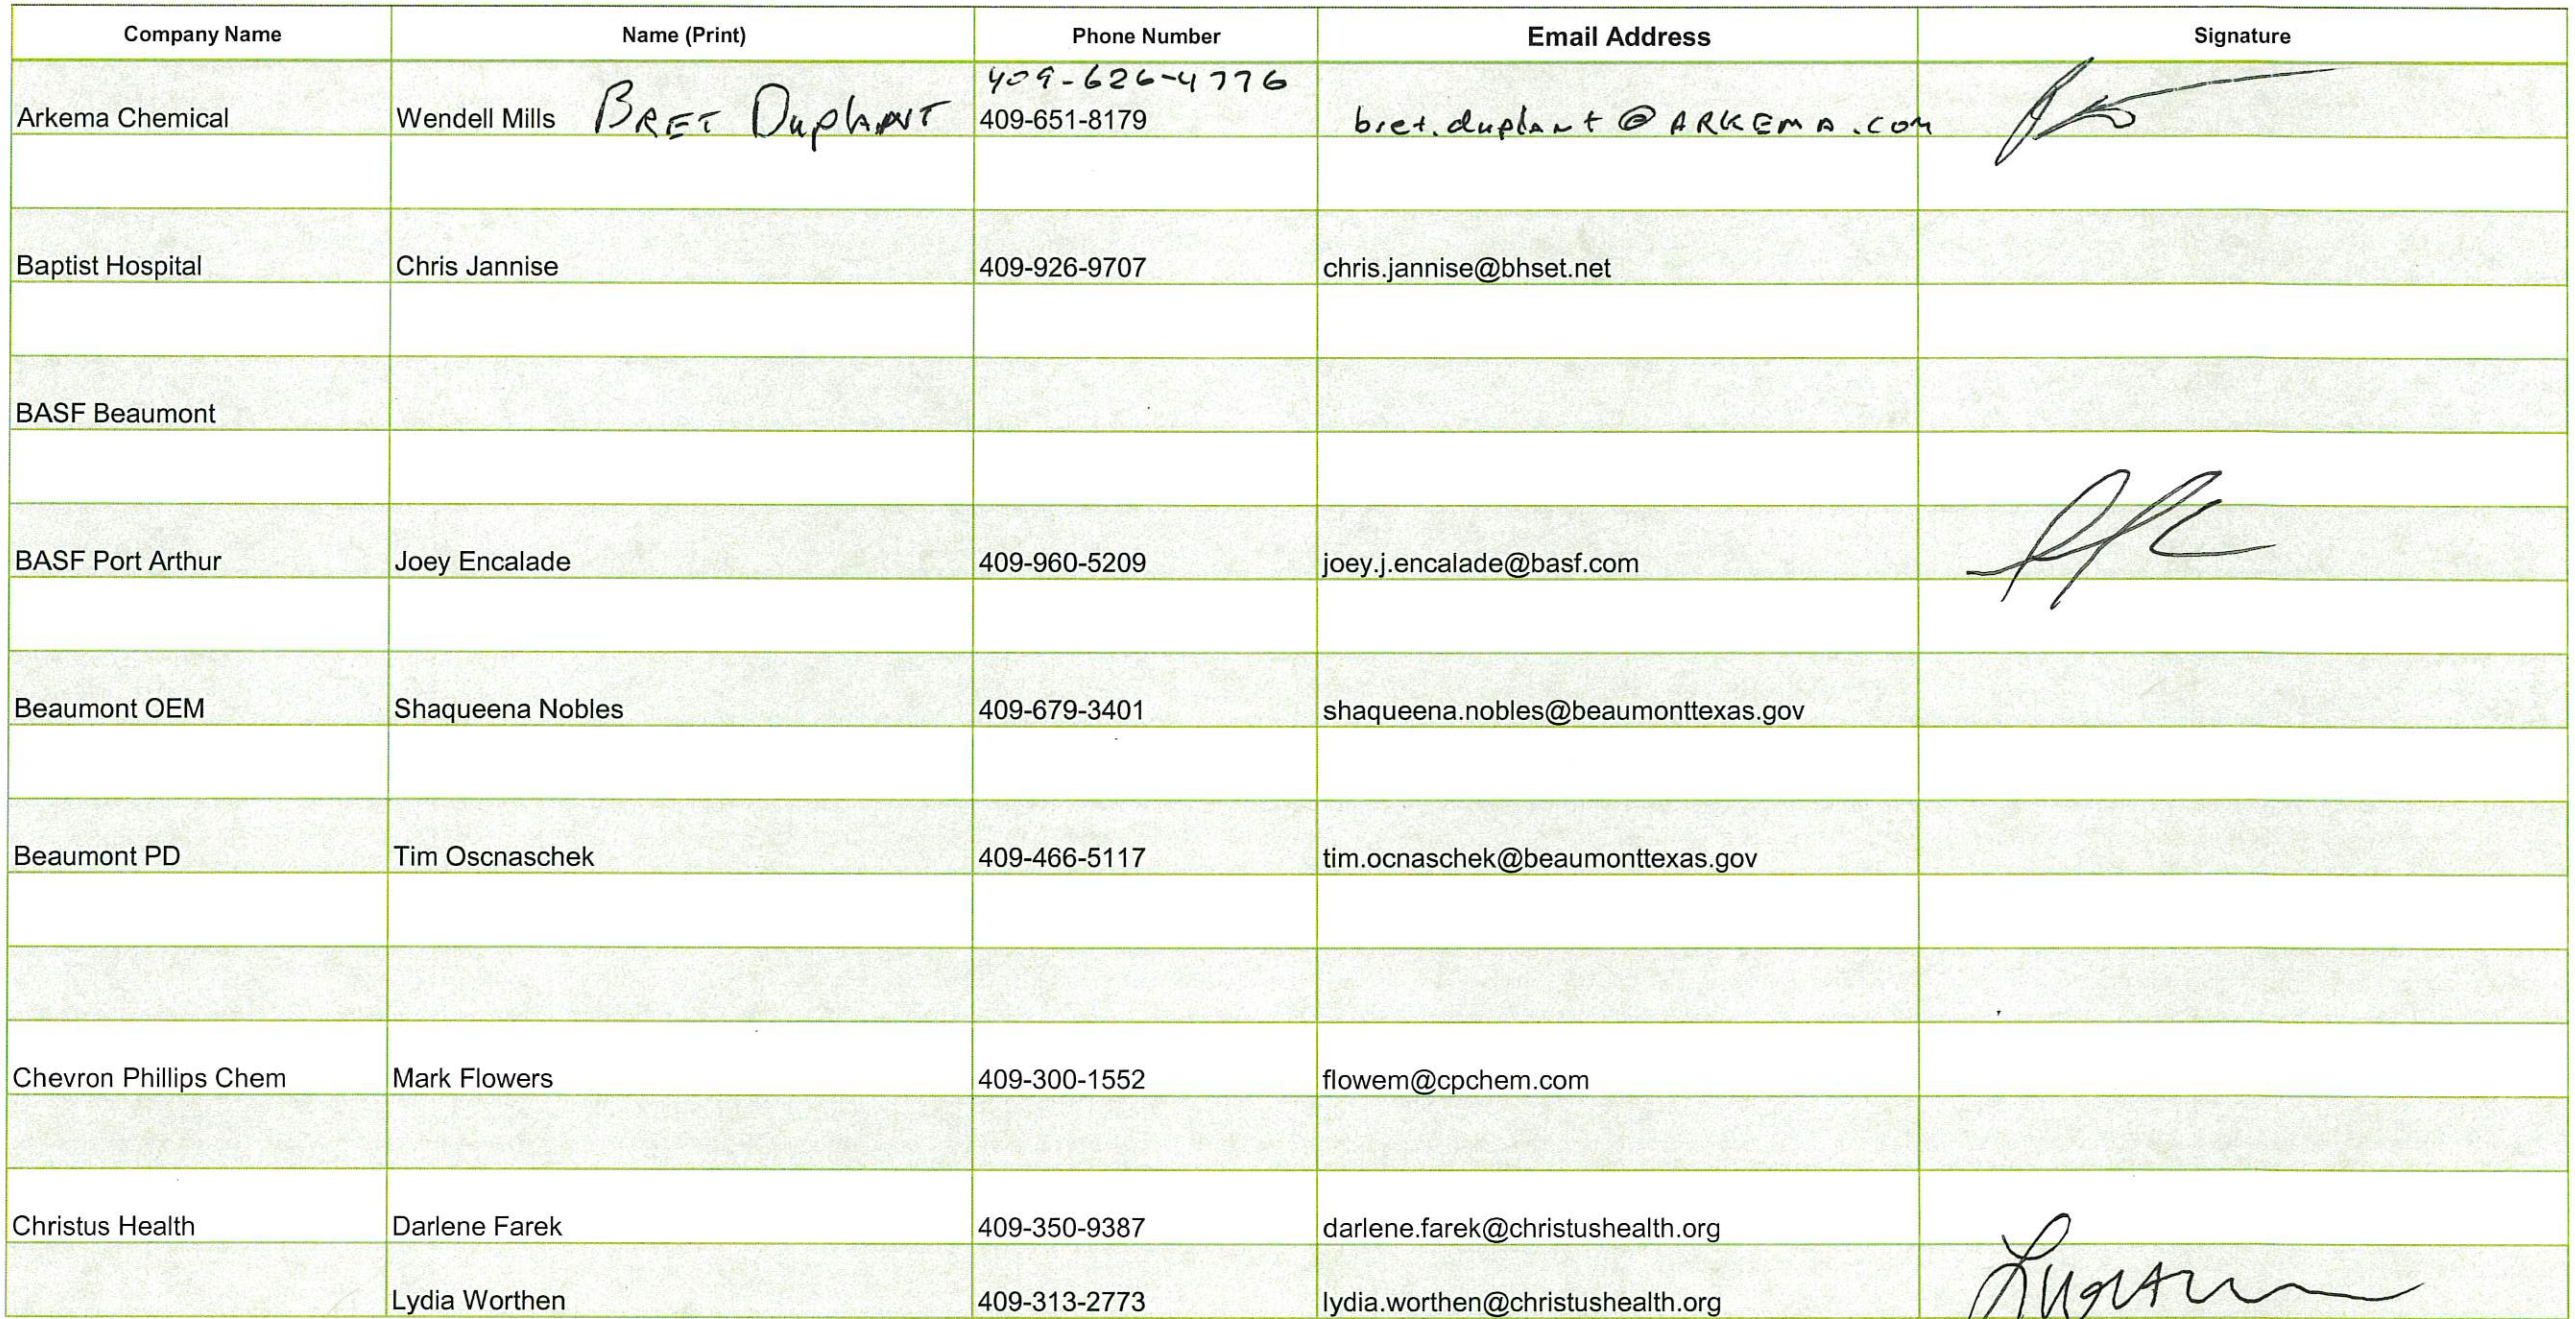 Company Name Name (Print) Phone Number Email Address Signature
409-626-4776
Arkema Chemical Wendell Mills BRET DuplANT 409-651-8179 bret.duplant@ARKEMA.com
Baptist Hospital Chris Jannise 409-926-9707 chris.jannise@bhset.net
BASF Beaumont
BASF Port Arthur Joey Encalade 409-960-5209 joey.j.encalade@basf.com
Beaumont OEM Shaqueena Nobles 409-679-3401 shaqueena.nobles@beaumonttexas.gov
Beaumont PD Tim Oscnaschek 409-466-5117 tim.ocnaschek@beaumonttexas.gov
Chevron Phillips Chem Mark Flowers 409-300-1552 flowem@cpchem.com
Christus Health Darlene Farek 409-350-9387 darlene.farek@christushealth.org
Lydia Worthen 409-313-2773 lydia.worthen@christushealth.org